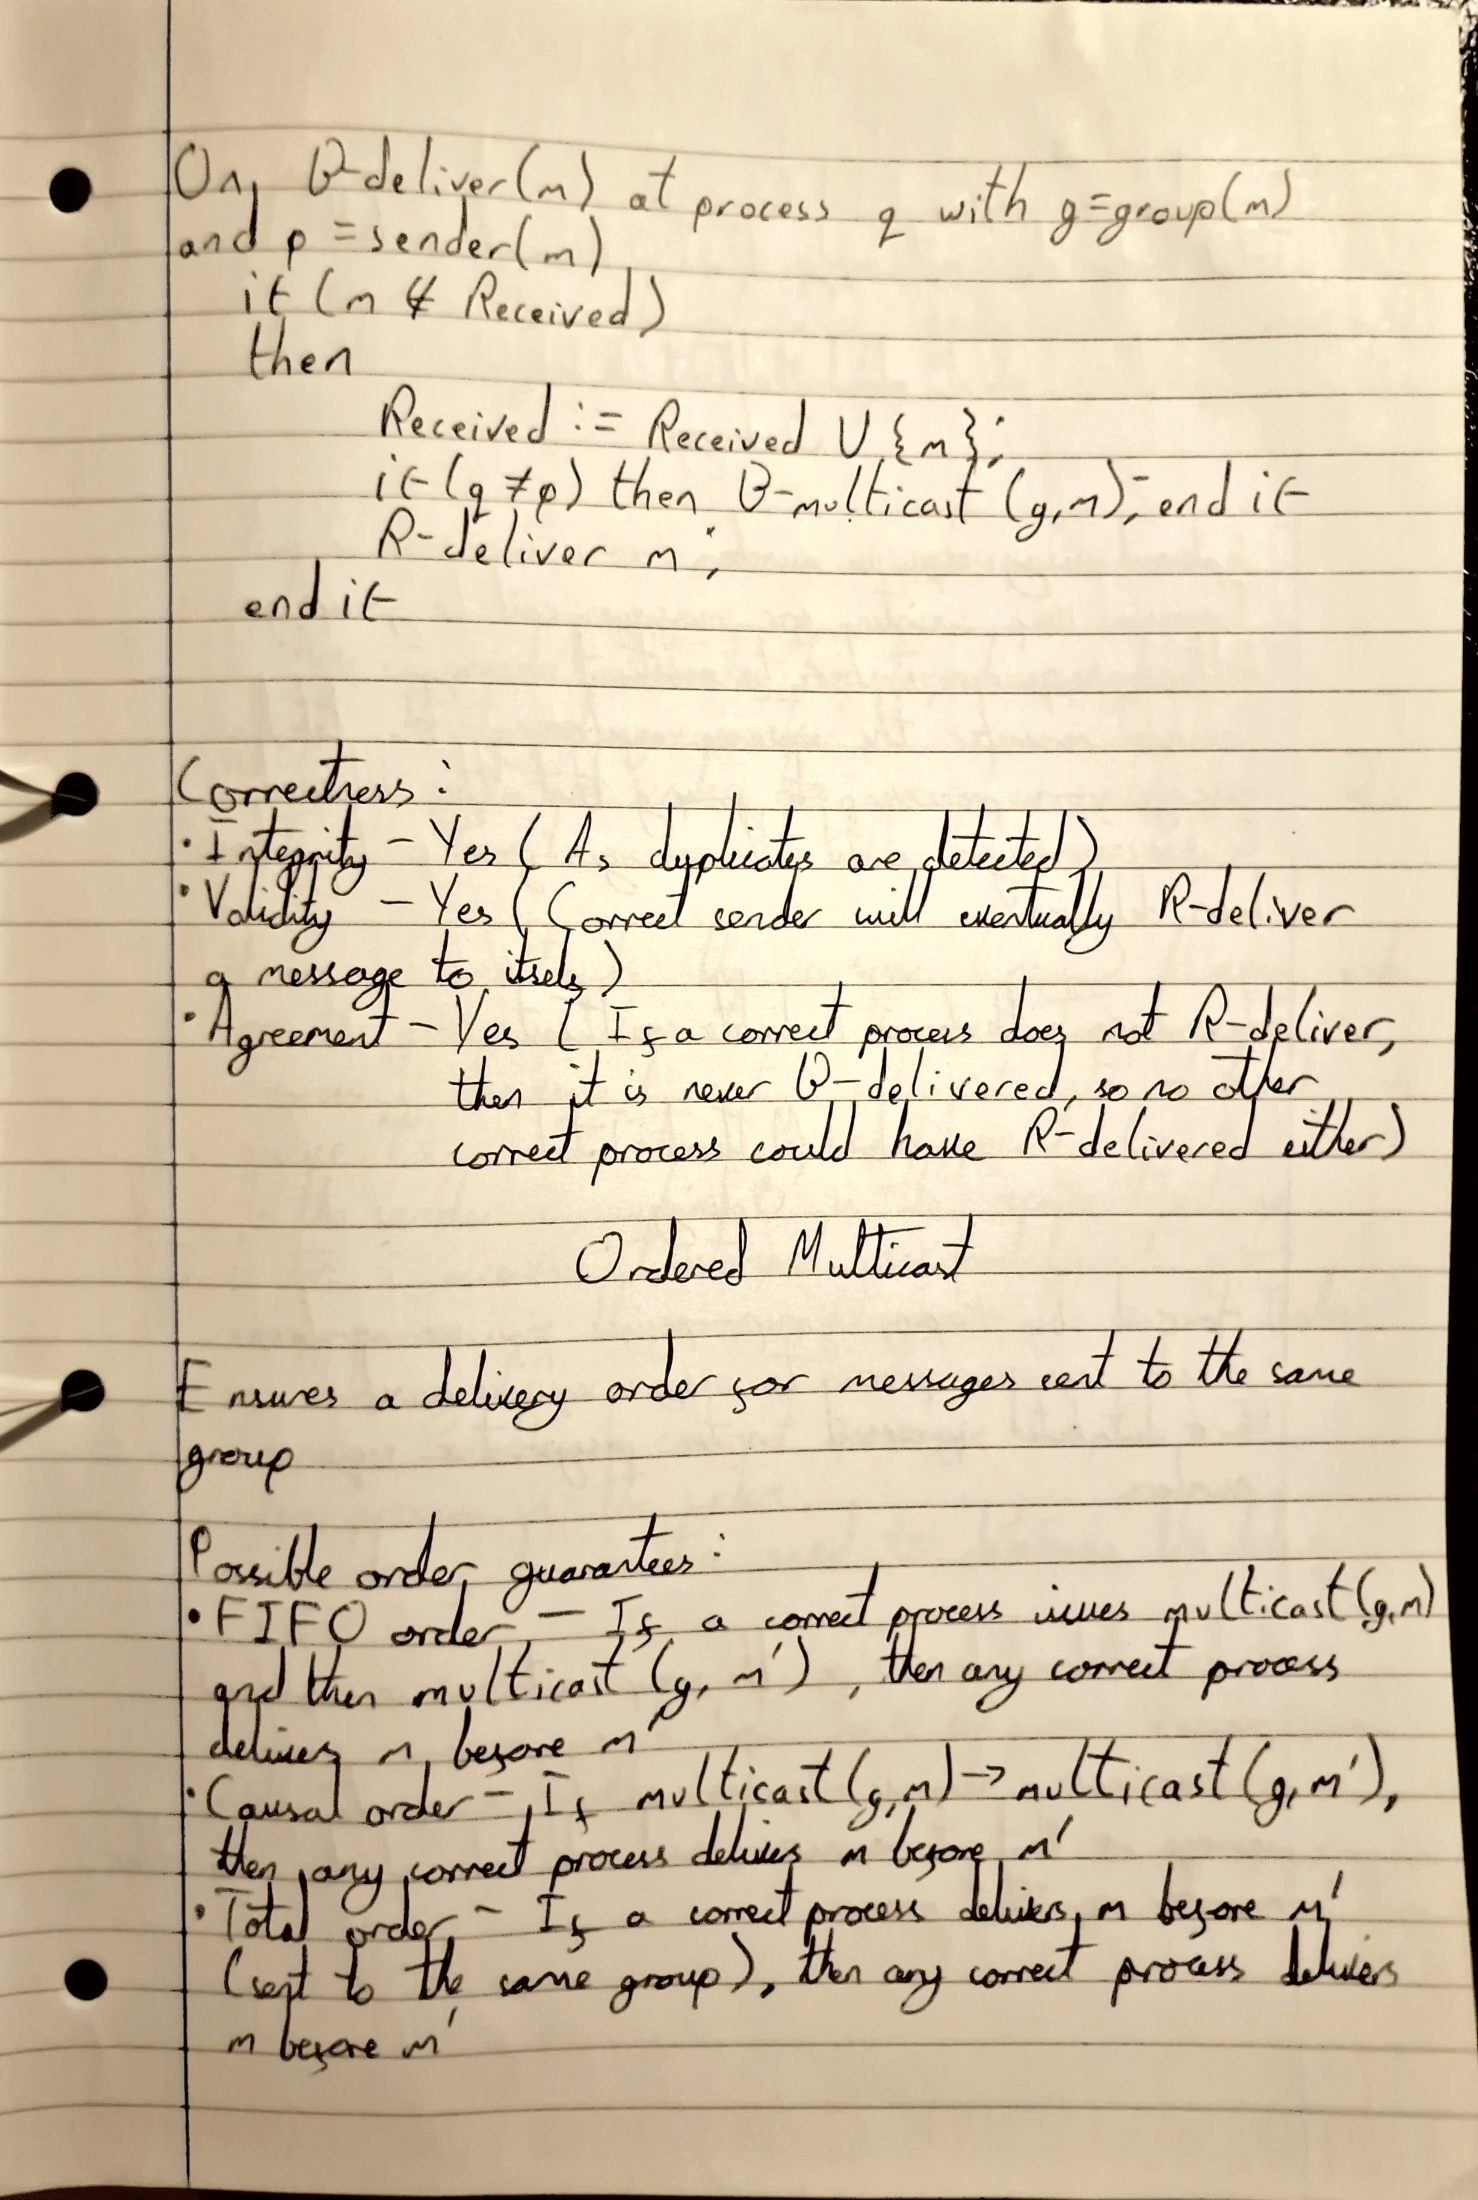 On B-deliver(m) at process q with g=group(m)
and p = sender(m)
if (m ∉ Received)
then
Received := Received ∪ {m};
if (q ≠ p) then B-multicast (g,m); end if
R-deliver m;
end if
Correctness:
· Integrity - Yes (As duplicates are detected)
· Validity - Yes (Correct sender will eventually R-deliver
a message to itself)
· Agreement - Yes (If a correct process does not R-deliver,
then it is never B-delivered, so no other
correct process could have R-delivered either)
Ordered Multicast
Ensures a delivery order for messages sent to the same
group
Possible order guarantees:
• FIFO order - If a correct process issues multicast(g,m)
and then multicast (g, m'), then any correct process
delivers m before m'
· Causal order - If multicast(g,m) → multicast(g,m'),
then any correct process delivers m before m'
· Total order - If a correct process delivers m before m'
(sent to the same group), then any correct process delivers
m before m'